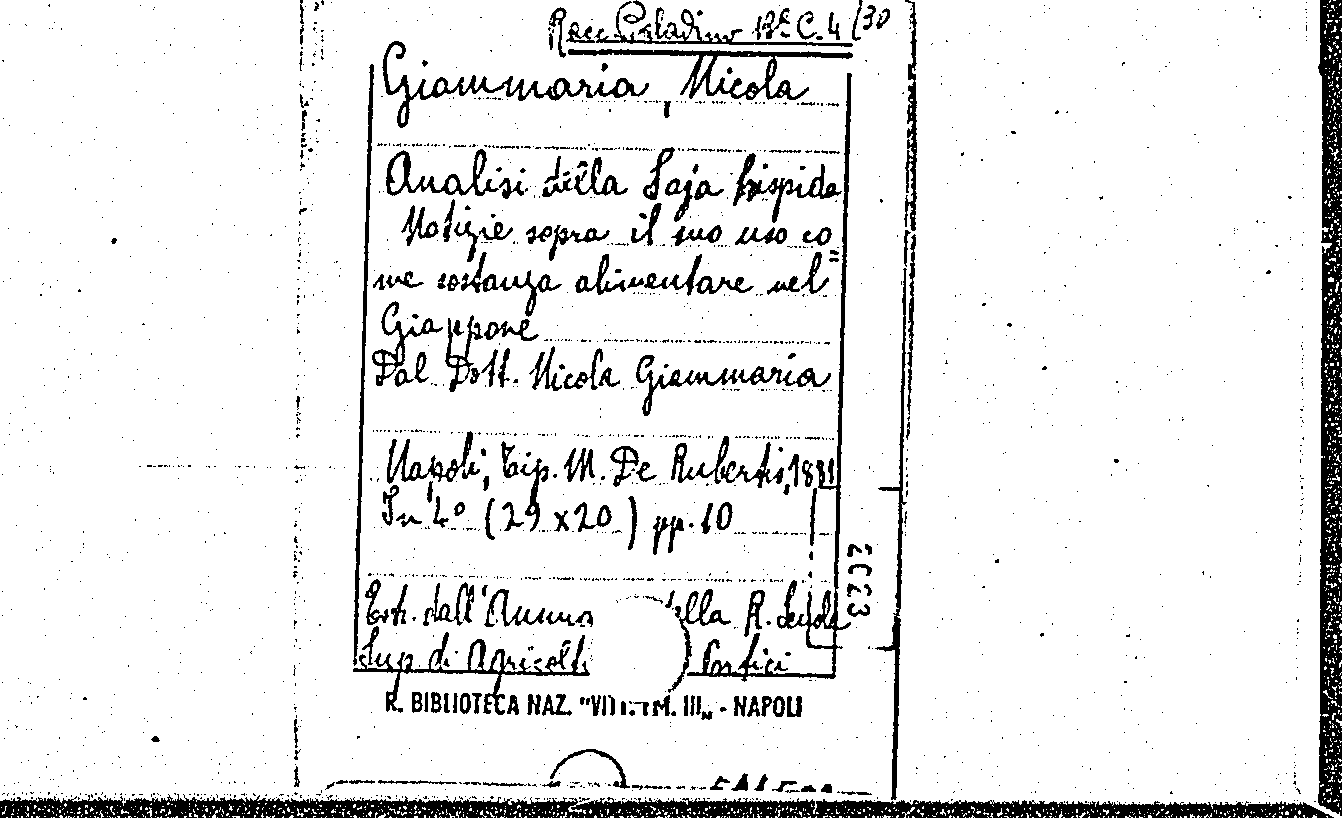 Racc. Paladino Bª C. 4 /30
Giammaria, Nicola
Analisi della Soja hispida
Notizie sopra il suo uso co=
me sostanza alimentare nel
Giappone
Dal Dott. Nicola Giammaria
Napoli, Tip. M. De Rubertis, 1881
In 4º (29 x 20) pp. 10
2023
Estr. dall'Annua della R. Scuola
Sup. di Agricolt Portici
R. BIBLIOTECA NAZ. "VITT. EM. III„ - NAPOLI